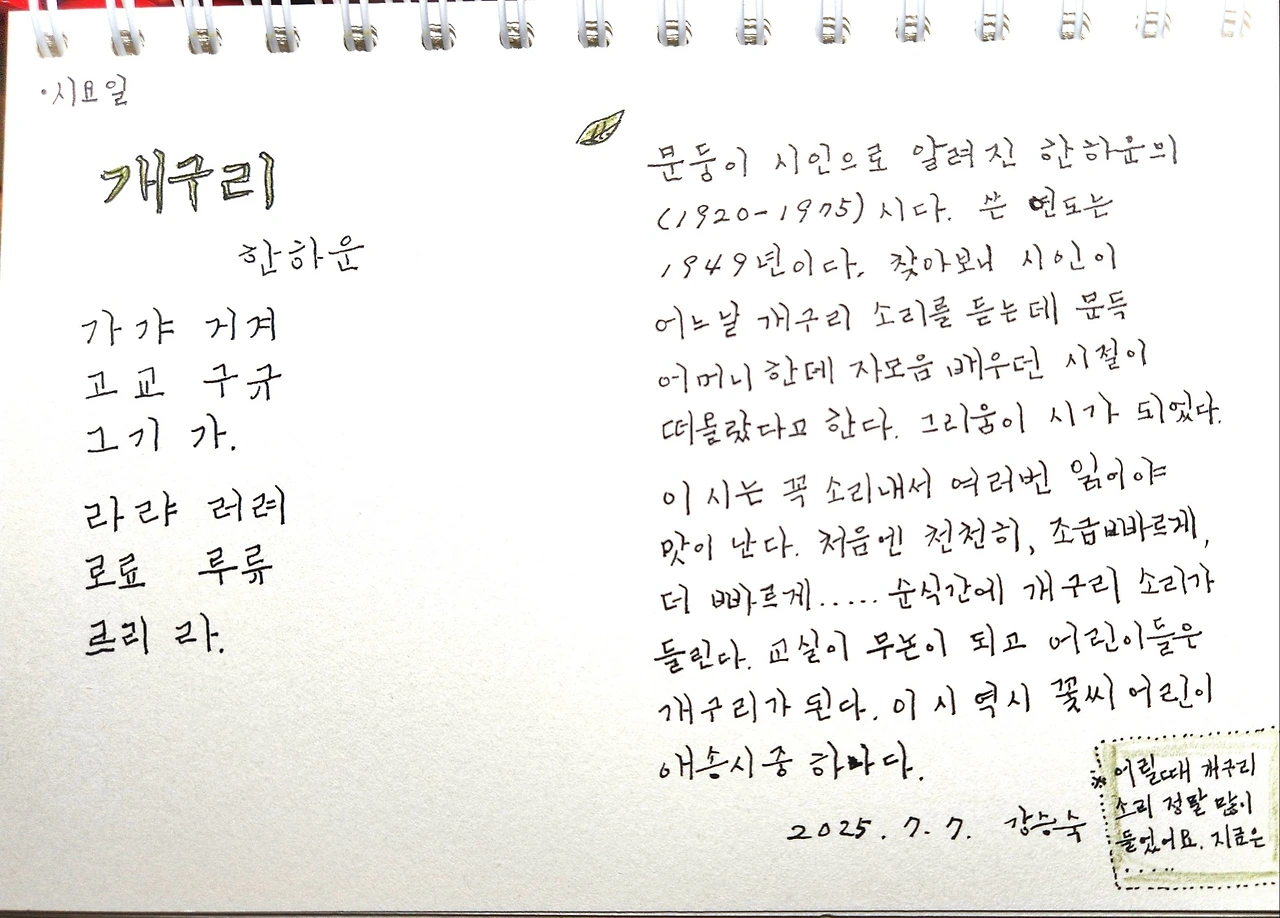 ·시요일
개구리
한하운
가갸 거겨
고교 구규
그기 가.
라랴 러려
로료 루류
르리 라.
문둥이 시인으로 알려진 한하운의
(1920-1975) 시다. 쓴 연도는
1949년이다. 찾아보니 시인이
어느날 개구리 소리를 듣는데 문득
어머니한데 자모음 배우던 시절이
떠올랐다고 한다. 그리움이 시가 되었다.
이 시는 꼭 소리내서 여러번 읽어야
맛이 난다. 처음엔 천천히, 조금빠르게,
더 빠르게..... 순식간에 개구리 소리가
들린다. 교실이 무논이 되고 어린이들은
개구리가 된다. 이 시 역시 꽃씨 어린이
애송시중 하나다.
2025. 7. 7. 강승숙
※ 어릴때 개구리
소리 정말 많이
들었어요. 지금은
.....